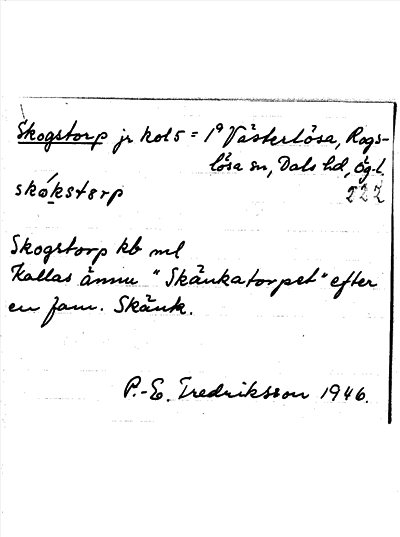 Skogstorp jr kol5 = 1ᵃ Västerlösa, Rogs-
lösa sn, Dals hd, Ög.l.
skǿkstɵrp 222
Skogstorp kb ml
Kallas ännu "Skänkatorpet" efter
en fam. Skänk.
P.-E. Fredriksson 1946.